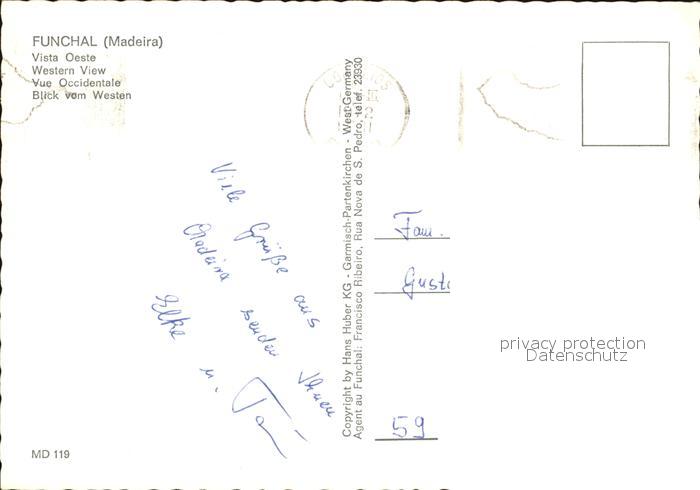 FUNCHAL (Madeira)
Vista Oeste
Western View
Vue Occidentale
Blick vom Westen
Viele Grüße aus
Madeira senden Ihnen
Elke u.
Copyright by Hans Huber KG - Garmisch-Partenkirchen - West-Germany
Agent au Funchal: Francisco Ribeiro, Rua Nova de S. Pedro, telef. 23930
Fam.
Gusti
privacy protection
Datenschutz
59
MD 119